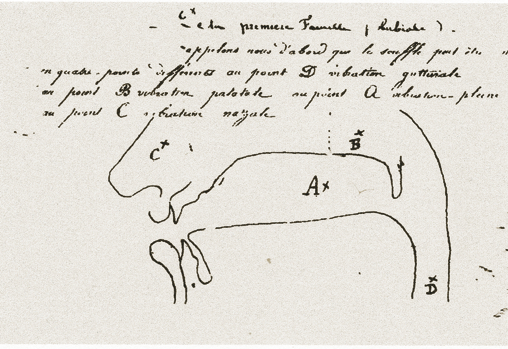 première Famille
rappelons nous d'abord que le souffle peut être
en quatre points différents au point D vibration gutturale
au point B vibration palatale au point A vibration pleine
au point C vibration nazale
C×
B×
A×
D×